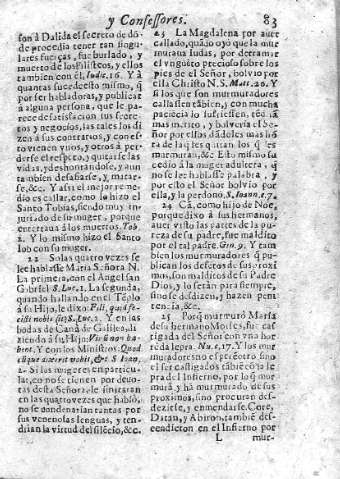 y Confessores. 83
son à Dalida el secreto de dõ-
de procedia tener tan singu-
lares fuerças, fue burlado, y
muerto de los Filisteos, y ellos
tambien con èl, Iudic. 16. Y à
quantas sucede esto mismo, q̃
por ser habladoras, y publicar
à alguna persona, que le pa-
rece de satisfacion sus secre-
tos y negocios, las tales los di-
zen à sus contrarios, y con es-
to vienen vnos, y otros à per-
derse el respeto, y quitarse las
vidas, y deshonrandose, y aun
tambien desafiarse, y matar-
se, &c. Y assi el mejor reme-
dio es callar, como lo hizo el
Santo Tobias, siendo muy in-
juriado de su muger, porque
enterraua à los muertos. Tob.
2. Y lo mismo hizo el Santo
Iob con su muger.
22 Solas quatro vezes se
lee hablasse Maria Señora N.
La primera, con el Angel san
Gabriel S. Luc. 1. La segunda,
quando hallando en el Tẽplo
à su Hijo, le dixo: Fili, quid fe-
cisti nobis sic? S. Luc. 2. Y en las
bodas de Canà de Galilea, di-
ziendo à su Hijo: Vinum non ha-
bent. Y con los Ministros: Quod
cumque dixerit vobis, &c. S. Ioan.
2. Si las mugeres en particu-
lar, como se tienen por deuo-
tas desta Señora, le imitaran
en las quatro vezes que hablò,
no se condenarian tantas por
sus venenosas lenguas, y ten-
drian la virtud del silẽcio, &c.
23 La Magdalena por auer
callado, quãdo oyò que la mur-
muraua Iudas, por derramar
el vnguẽto precioso sobre los
pies de el Señor, bolviò por
ella Christo N. S. Mat. 26. Y
si los que son murmuradores
callassen tãbien, y con mucha
paciencia lo sufriessen, tẽdriã
mas merito, y bolveria el Se-
ñor por ellos dãdoles mas hõ-
ra de la q̃ les quitan los q̃ les
murmuran, &c. Esto mismo su-
cediò à la muger adultera, q̃
no se lee hablasse palabra, y
por esto el Señor bolviò por
ella, y la perdonò. S. Ioann. c. 7.
24 Cã, como hijo de Noe,
porque dixo à sus hermanos,
auer visto las partes de la pu-
reza de su padre, fue maldito
por el tal padre Gen. 9. Y tam-
bien los murmuradores q̃ pu-
blican los defetos de sus proxi-
mos, son malditos de su Padre
Dios, y lo seràn para siempre,
sino se desdizen, y hazen peni-
tencia, &c.
25 Porq̃ murmurò Maria
de su hermano Moises, fue cas-
tigada del Señor con vna hor-
reda lepra. Nu. c. 17. Y los mur-
muradores no esperẽ otro sino
el ser castigados tãbiẽ cõ la le-
pra del Infierno, por lo q̃ mur-
murã y hã murmurado de sus
proximos, sino procuran des-
dezirse, y enmendarse. Core,
Datan, y Abiron, tambiẽ des-
cendieron en el Infierno por
L mur-